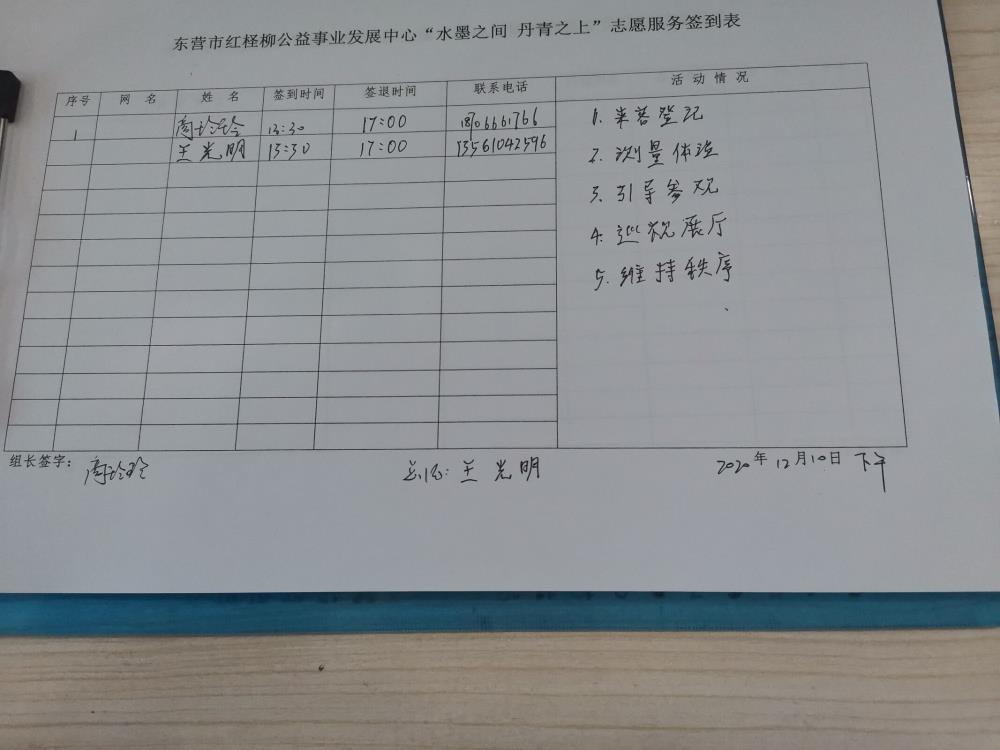 东营市红柽柳公益事业发展中心“水墨之间 丹青之上”志愿服务签到表
序号 网 名 姓 名 签到时间 签退时间 联系电话 活动情况
1 周玲玲 13:30 17:00
王光明 13:30 17:00 13561042596
1. 来宾登记
2. 测量体温
3. 引导参观
4. 巡视展厅
5. 维持秩序
组长签字: 周玲玲 王光明 2020年12月10日 下午